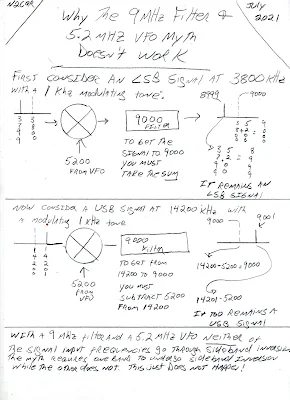 N2CQR
JULY 2021
Why The 9 MHz Filter &
5.2 MHz VFO Myth
Doesn't Work
FIRST CONSIDER AN LSB SIGNAL AT 3800 kHz
WITH A 1 kHz modulating tone.
8999
9000
3799
3800
9000
FILTER
5200
FROM VFO
TO GET THE
SIGNAL TO 9000
YOU MUST
TAKE THE SUM
3800
5200
9000
3799
5200
8999
IT REMAINS AN
LSB SIGNAL
NOW CONSIDER A USB SIGNAL AT 14200 kHz with
a modulating 1 kHz tone
9000
9001
14200
14201
9000
Filter
5200
FROM
VFO
TO GET FROM
14200 TO 9000
YOU MUST
SUBTRACT 5200
FROM 14200
14200-5200=9000
14201-5200
IT TOO REMAINS A
USB SIGNAL
WITH A 9 MHz FILTER AND A 5.2 MHz VFO NEITHER OF
THE SIGNAL INPUT FREQUENCIES GO THROUGH SIDEBAND INVERSION
THE MYTH REQUIRES ONE BAND TO UNDERGO SIDEBAND INVERSION
WHILE THE OTHER DOES NOT. THIS JUST DOES NOT HAPPEN!